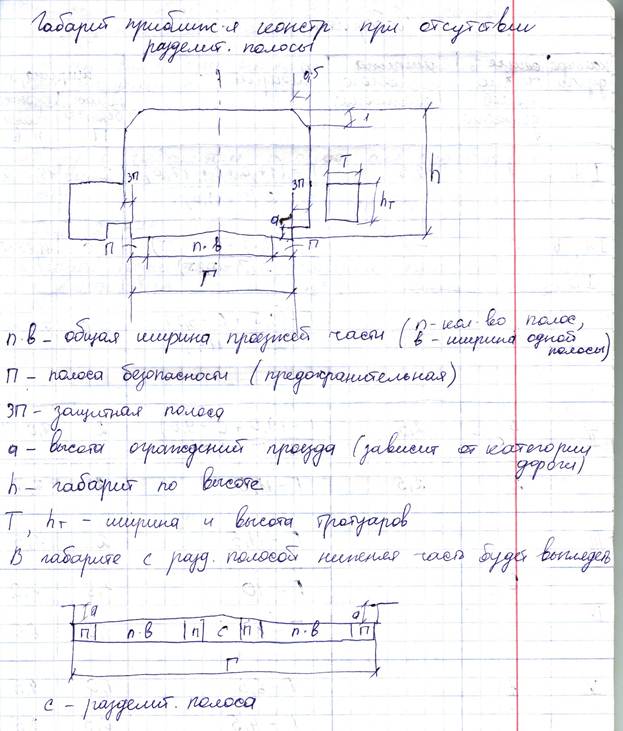 Габарит приближ-я констр. при отсутствии
разделит. полосы
0,5
1
T
h
ЗП
ЗП
hт
a
П
n·в
П
Г
n·в – общая ширина проезжей части (n – кол-во полос,
в – ширина одной
полосы)
П – полоса безопасности (предохранительная)
ЗП – защитная полоса
a – высота ограждений проезда (зависит от категории
дороги)
h – габарит по высоте
T, hт – ширина и высота тротуаров
В габарите с разд. полосой нижняя часть будет выглядеть
a
a
П
n·в
П
С
П
n·в
П
Г
С – разделит. полоса